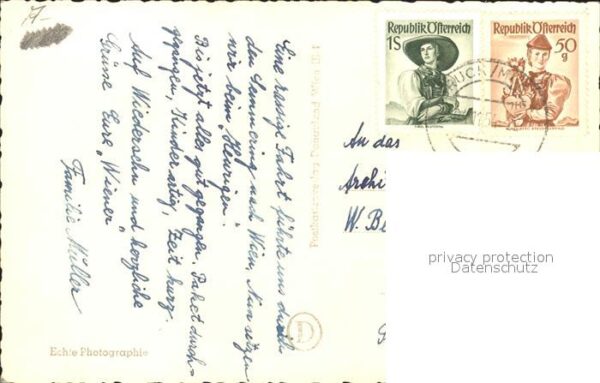 Eine rassige Fahrt führte uns durch
den Semmering nach Wien. Nun sitzen
wir beim "Heurigen".
Bis jetzt alles gut gegangen, Paket durch-
gegangen, Kinder artig, Zeit kurz.
Auf Wiedersehn und herzliche
Grüsse Eure "Wiener"
Familie Müller
Echte Photographie
Republik Österreich
1S
Republik Österreich
50
g
BRUCK/M
An das
Archi
W. Be
privacy protection
Datenschutz
D